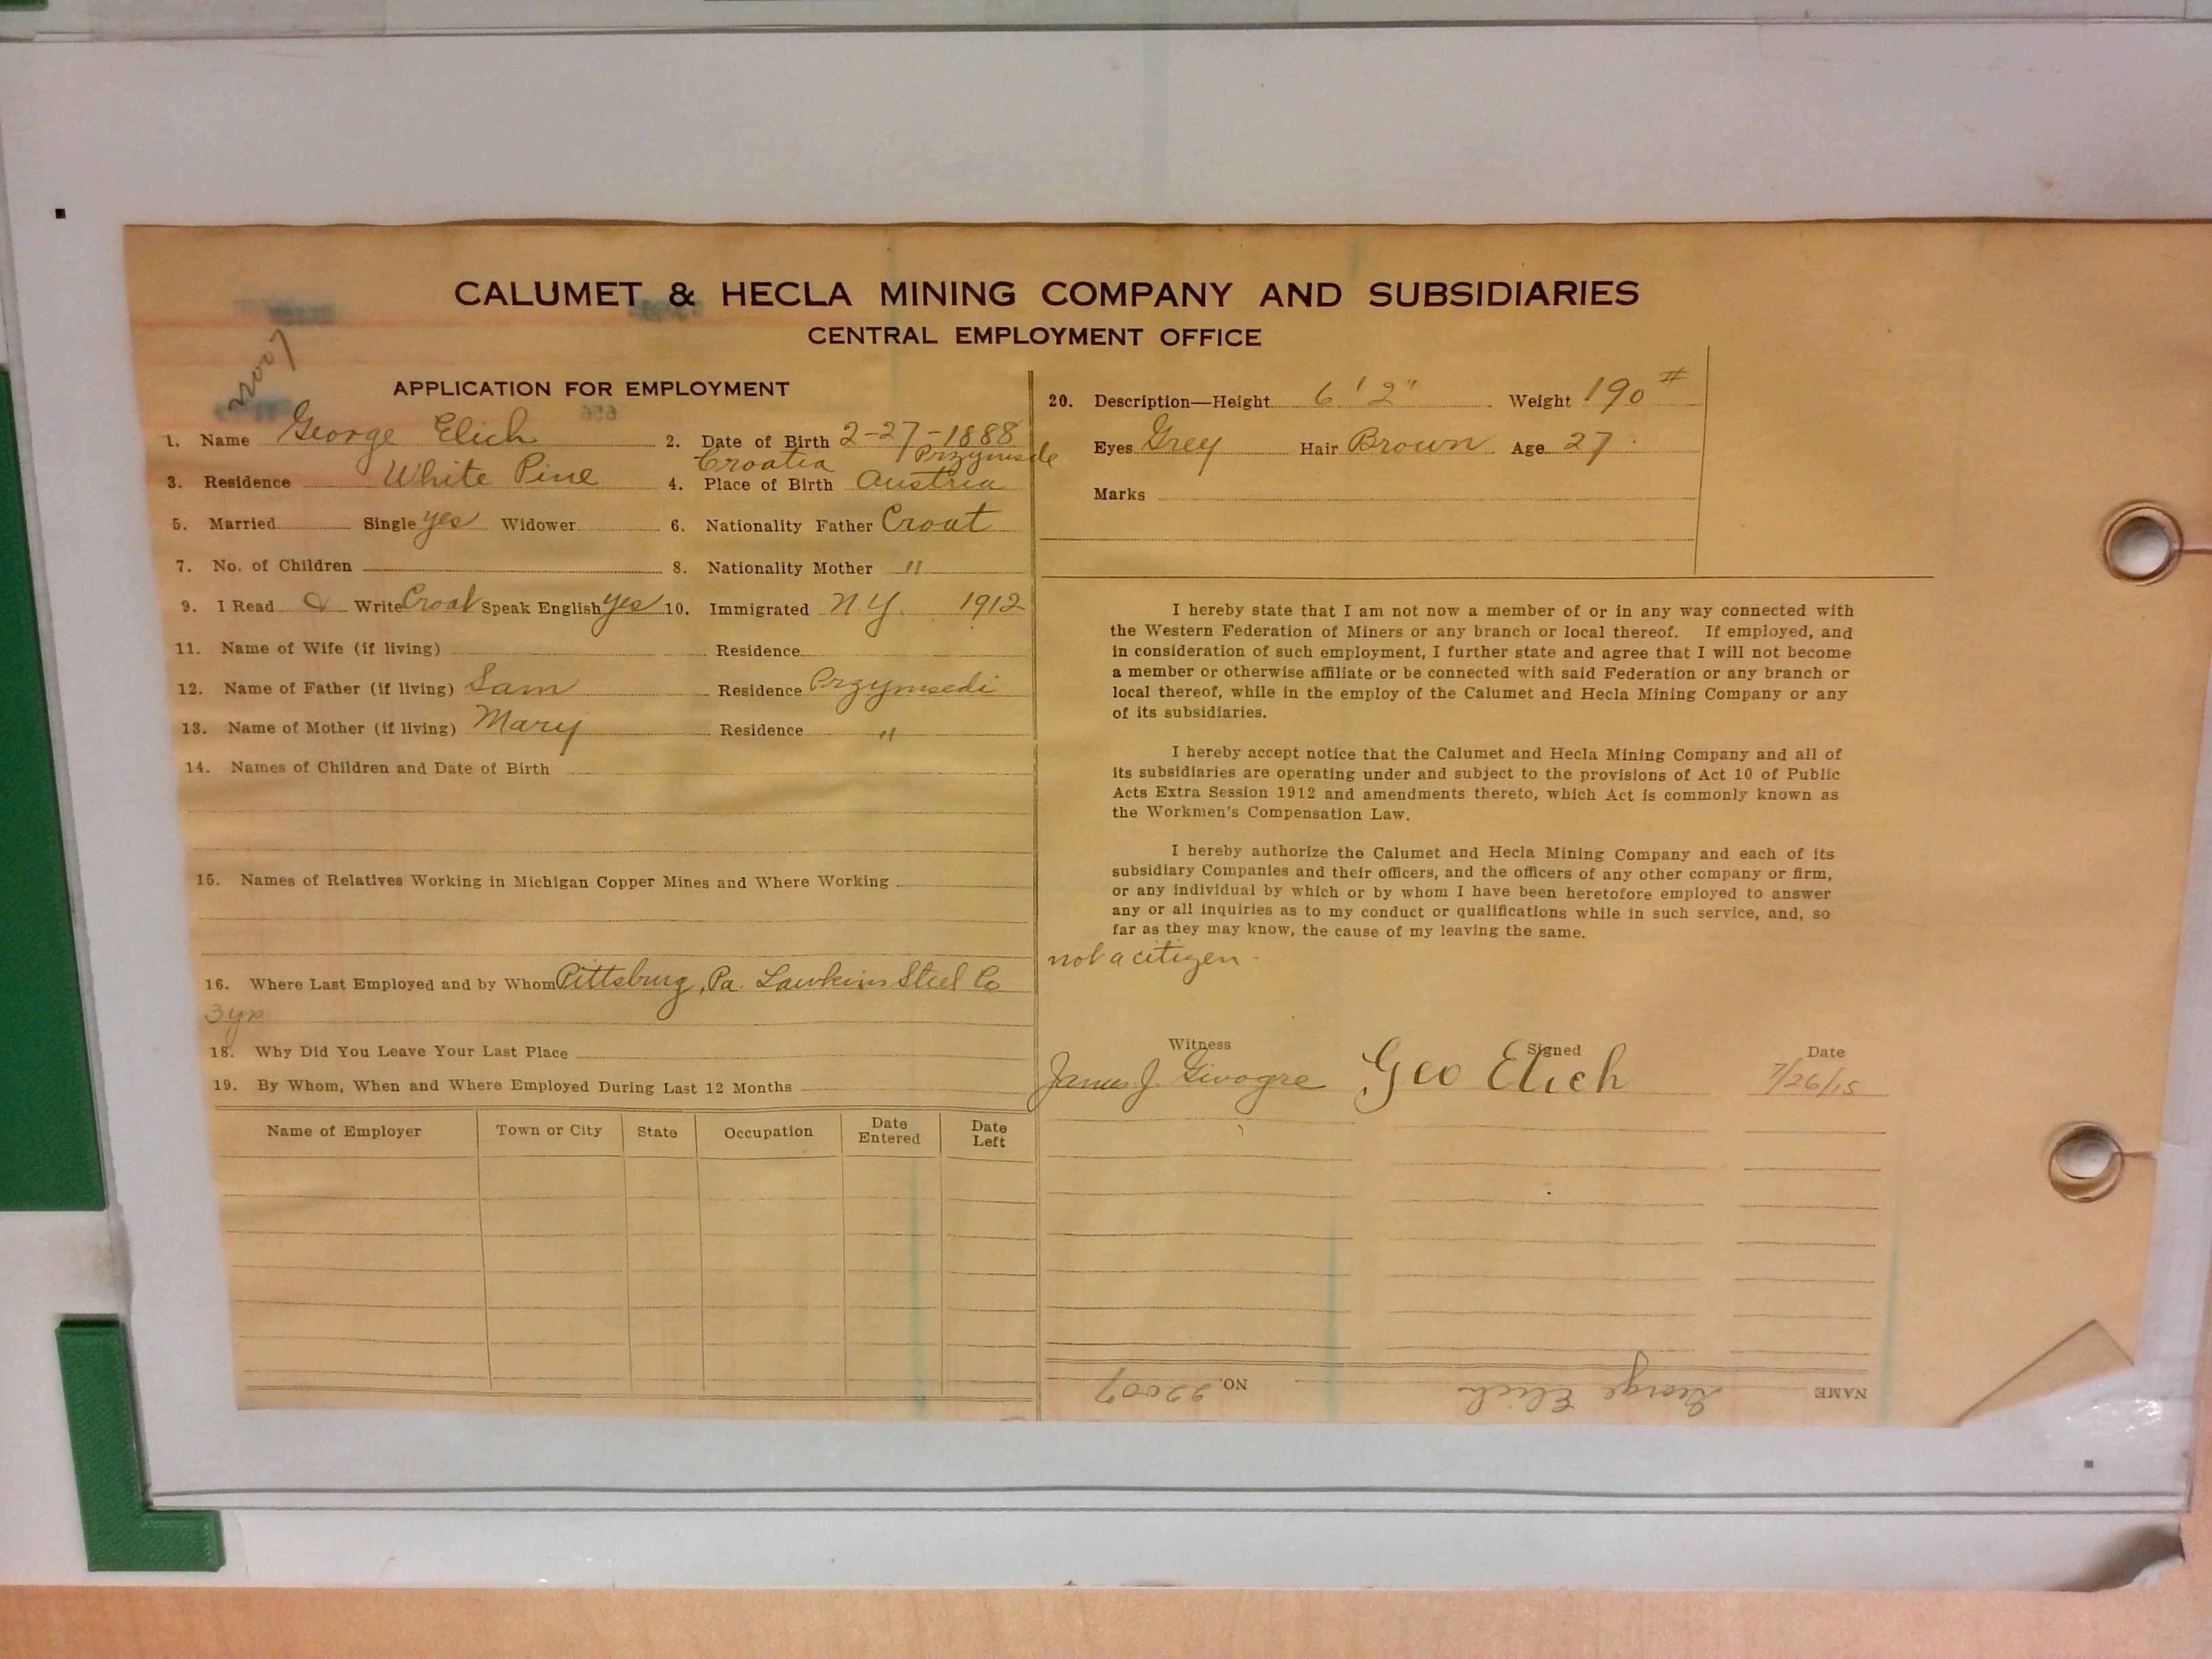 CALUMET & HECLA MINING COMPANY AND SUBSIDIARIES
CENTRAL EMPLOYMENT OFFICE
22007
APPLICATION FOR EMPLOYMENT
1. Name George Elich 2. Date of Birth 2-27-1888
Croatia
3. Residence White Pine 4. Place of Birth Austria
5. Married Single yes Widower 6. Nationality Father Croat
7. No. of Children 8. Nationality Mother "
9. I Read & Write Croat Speak English yes 10. Immigrated N.Y. 1912
11. Name of Wife (if living) Residence
12. Name of Father (if living) Sam Residence
13. Name of Mother (if living) Mary Residence "
14. Names of Children and Date of Birth
15. Names of Relatives Working in Michigan Copper Mines and Where Working
16. Where Last Employed and by Whom Pittsburg, Pa. Steel Co
3 yrs
18. Why Did You Leave Your Last Place
19. By Whom, When and Where Employed During Last 12 Months
Name of Employer Town or City State Occupation Date Entered Date Left
20. Description—Height 6'2" Weight 190 #
Eyes Grey Hair Brown Age 27
Marks
I hereby state that I am not now a member of or in any way connected with
the Western Federation of Miners or any branch or local thereof. If employed, and
in consideration of such employment, I further state and agree that I will not become
a member or otherwise affiliate or be connected with said Federation or any branch or
local thereof, while in the employ of the Calumet and Hecla Mining Company or any
of its subsidiaries.
I hereby accept notice that the Calumet and Hecla Mining Company and all of
its subsidiaries are operating under and subject to the provisions of Act 10 of Public
Acts Extra Session 1912 and amendments thereto, which Act is commonly known as
the Workmen's Compensation Law.
I hereby authorize the Calumet and Hecla Mining Company and each of its
subsidiary Companies and their officers, and the officers of any other company or firm,
or any individual by which or by whom I have been heretofore employed to answer
any or all inquiries as to my conduct or qualifications while in such service, and, so
far as they may know, the cause of my leaving the same.
not a citizen -
Witness Signed Date
James J. Geo Elich 7/26/15
NAME George Elich NO. 22007